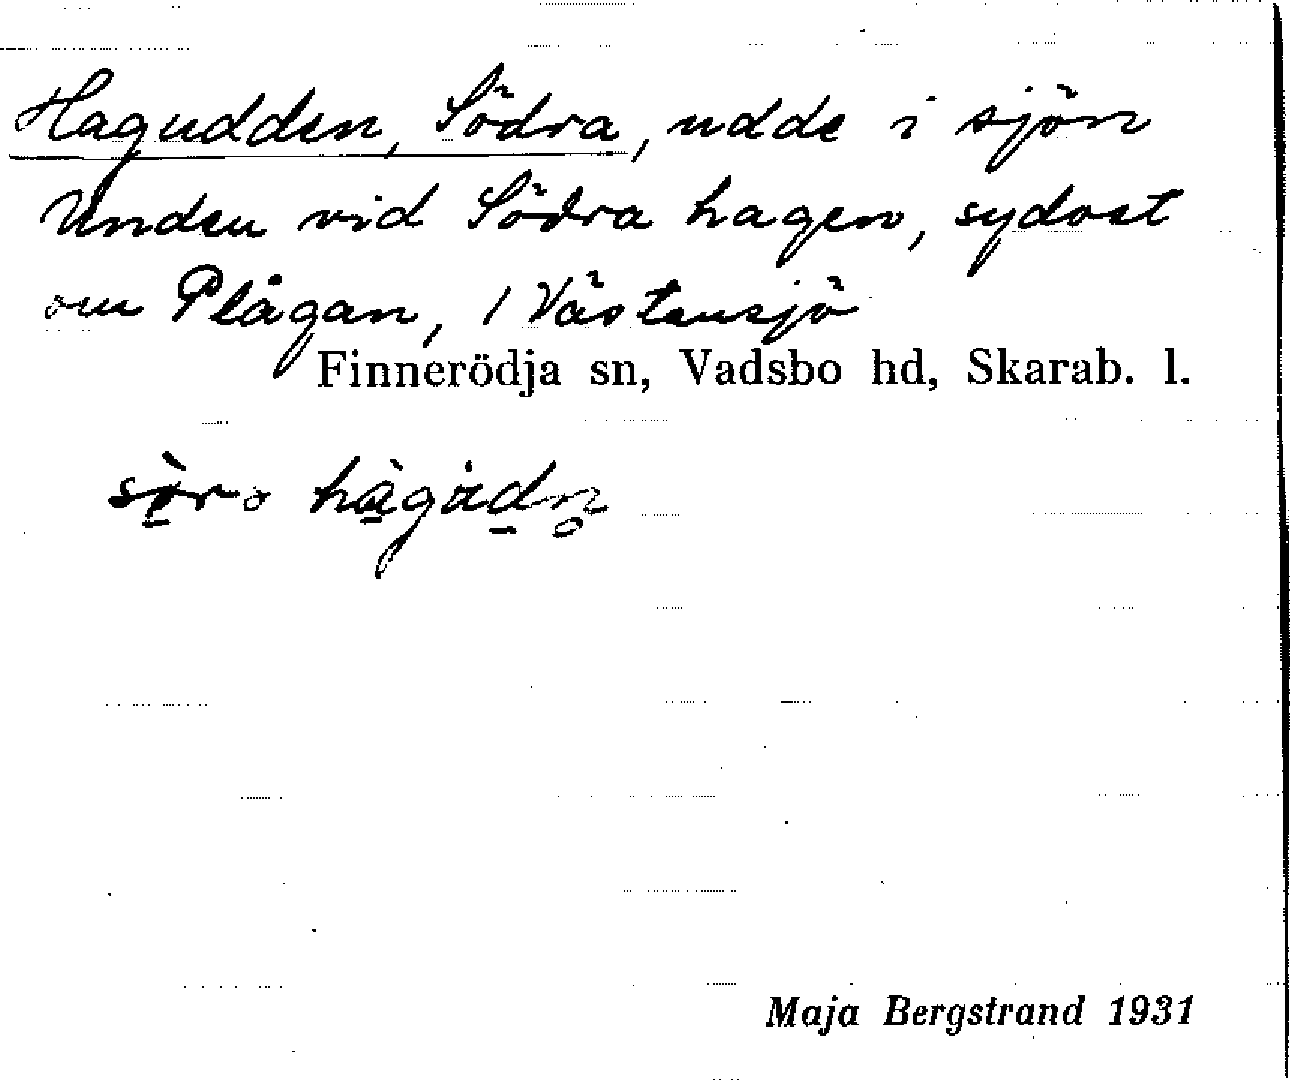 Hagudden, Södra, udde i sjön
Unden vid Södra hagen, sydost
om Plågan, / Västansjö
Finnerödja sn, Vadsbo hd, Skarab. l.
Maja Bergstrand 1931